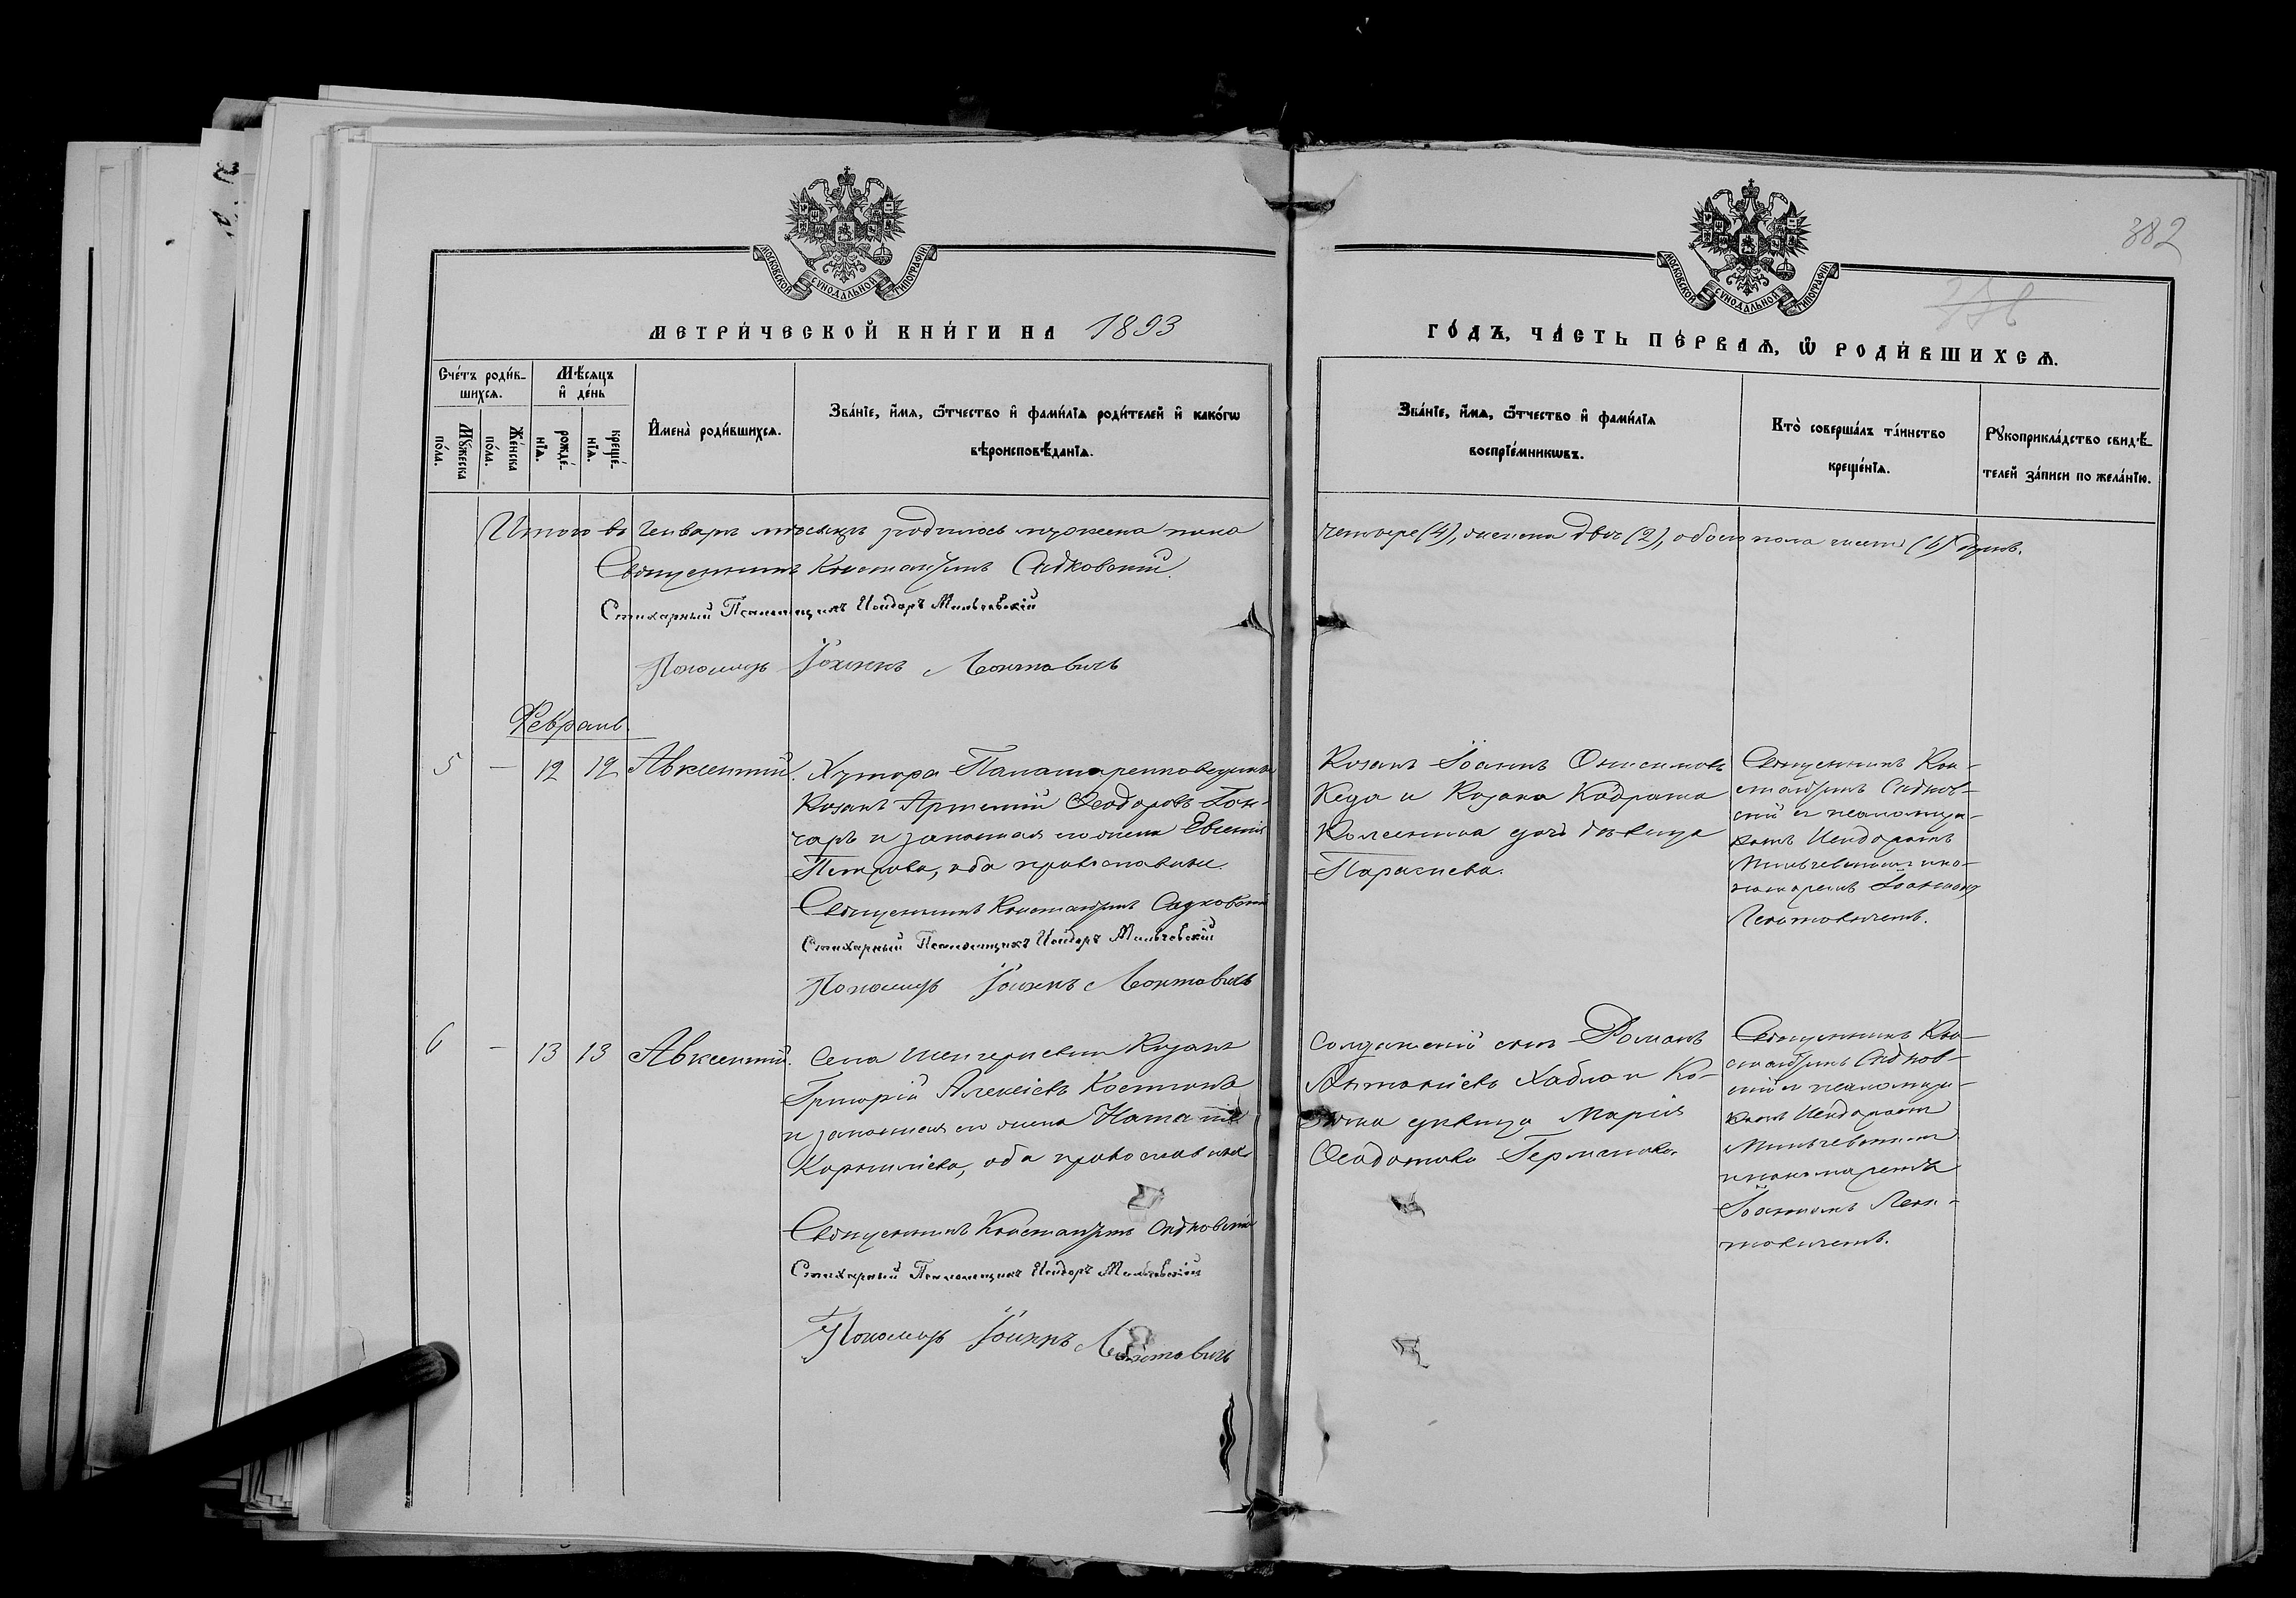 382
МОСКОВСКОЙ СѴНОДАЛЬНОЙ ТИПОГРАФІИ.
МОСКОВСКОЙ СѴНОДАЛЬНОЙ ТИПОГРАФІИ.
МЕТРИ́ЧЕСКОЙ КНИ́ГИ НА 1893
ГО́ДЪ, ЧА́СТЬ ПЕ́РВАЯ, Ѿ РОДИ́ВШИХСЯ.
Сче́тъ роди́в-
шихся.
Мѣ́сяцъ
и҆ де́нь
Мꙋ́жеска
по́ла.
Же́нска
по́ла.
рожде́-
нїя.
креще́-
нїя.
И҆мена̀ роди́вшихся.
Зва́нїе, и҆́мя, ѻ҆́тчество и҆ фами́лїя роди́телей и҆ како́гѡ
вѣроисповѣ́данїя.
Зва́нїе, и҆́мя, ѻ҆́тчество и҆ фами́лїя
воспрїе́мникѡвъ.
Кто̀ соверша́лъ та́инство
креще́нїя.
Рꙋкоприкла́дство свидѣ́-
телей за́писи по жела́нїю.
Итого въ Генварѣ мѣсяцѣ родилось мужеска пола
четыре (4), женска двѣ (2), обоего пола шесть (6) душъ.
Священникъ Константинъ Садковскій.
Стихарный Псаломщикъ Исидоръ Мильчевскій
Пономарь Іоаннъ Леонтовичь
Февраль.
5 — 12 12 Авксентій.
Хутора
Козакъ Артемій Ѳеодоровъ Гон-
чаръ и законная его жена Евгенія
Петрова, оба православные.
Священникъ Константинъ Садковскій
Стихарный Псаломщикъ Исидоръ Мильчевскій
Пономарь Іоаннъ Леонтовичь
Козакъ Іоаннъ Онисимовъ
и Козака Кодрата
дочь дѣвица
Параскева.
Священникъ Кон-
стантинъ Садков-
скій и псаломщи-
комъ Исидоромъ
Мильчевскимъ и по-
номаремъ Іоанномъ
Леонтовичемъ.
6 — 13 13 Авксентій.
Села Козакъ
Григорій Алексіевъ
и законная его жена Наталія
Корнилієва, оба православные
Священникъ Константинъ Садковскій
Стихарный Псаломщикъ Исидоръ Мильчевскій
Пономарь Іоаннъ Леонтовичь
Солдатскій сынъ Романъ
Антоніевъ и Ко-
дѣвица Марія
Ѳеодотова
Священникъ Кон-
стантинъ Садков-
скій и псаломщи-
комъ Исидоромъ
Мильчевскимъ
и пономаремъ
Іоанномъ Леон-
товичемъ.